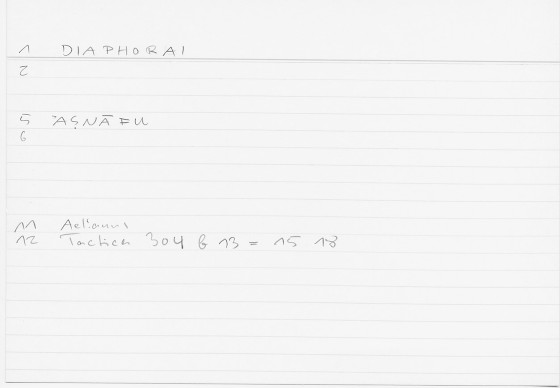 1 DIAPHORAI
2
5 'AṢNĀFU
6
11 Aelianus
12 Tactica 304 b 13 = 15 18